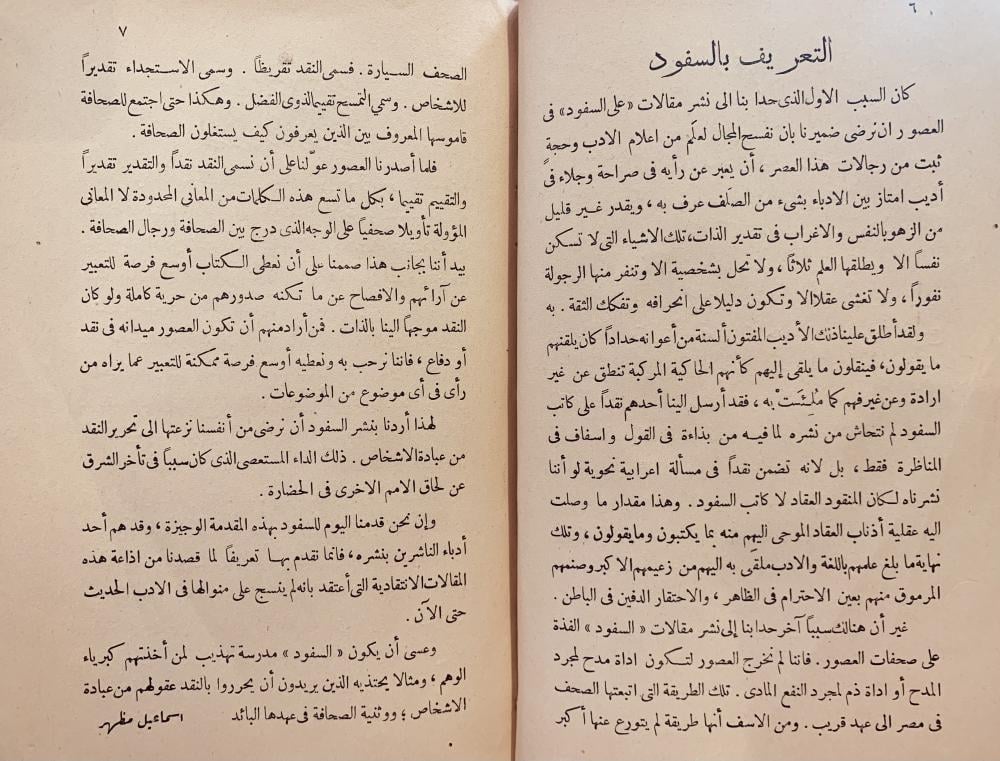 ٦
التعريف بالسفود
كان السبب الاول الذى حدا بنا الى نشر مقالات «على السفود» فى
العصور ان نرضى ضميرنا بان نفسح المجال لعلَم من اعلام الادب وحجةٍ
ثبت من رجالات هذا العصر ، أن يعبر عن رأيه فى صراحة وجلاء فى
أديب امتاز بين الادباء بشىء من الصلَف عرف به ، ويقدر غير قليل
من الزهو بالنفس والاغراب فى تقدير الذات، تلك الاشياء التى لا تسكن
نفساً الا ويطلقها العلم ثلاثاً ، ولا تحل بشخصية الا وتنفر منها الرجولة
نفوراً ، ولا تغشى عقلا الا وتكون دليلا على انحرافه وتفكك الثقة . به
ولقد أطلق علينا ذلك الأديب المفتون ألسنة من أعوانه حداداً كان يلقنهم
ما يقولون، فينقلون ما يلقى إليهم كأنهم الحاكية المركبة تنطق عن غير
ارادة وعن غير فهم كما مُلِئَت به ، فقد أرسل الينا أحدهم نقداً على كاتب
السفود لم نتحاش من نشره لما فيه من بذاءة فى القول واسفاف فى
المناظرة فقط ، بل لانه تضمن نقداً فى مسألة اعرابية نحوية لو أننا
نشرناه لكان المنقود العقاد لا كاتب السفود . وهذا مقدار ما وصلت
اليه عقلية أذناب العقاد الموحى اليهم منه بما يكتبون وما يقولون ، وتلك
نهاية ما بلغ علمهم باللغة والادب ملقَى به اليهم من زعيمهم الاكبر وصنمهم
المرموق منهم بعين الاحترام فى الظاهر ، والاحتقار الدفين فى الباطن .
غير أن هنالك سبباً آخر حدا بنا إلى نشر مقالات «السفود» الفذة
على صحفات العصور . فاننا لم نخرج العصور لتكون اداة مدح لمجرد
المدح أو اداة ذم لمجرد النفع المادى . تلك الطريقة التى اتبعتها الصحف
فى مصر الى عهد قريب . ومن الاسف أنها طريقة لم يتورع عنها أكبر
٧
الصحف السيارة . فسمى النقد تقريظاً . وسمى الاستجداء تقديراً
للاشخاص . وسمى التمسح تقييما لذوى الفضل . وهكذا حتى اجتمع للصحافة
قاموسها المعروف بين الذين يعرفون كيف يستغلون الصحافة .
فلما أصدرنا العصور عوّلنا على أن نسمى النقد نقداً والتقدير تقديراً
والتقييم تقييما ، بكل ما تسع هذه الكلمات من المعانى المحدودة لا المعانى
المؤولة تأويلا صحفياً على الوجه الذى درج بين الصحافة ورجال الصحافة .
بيد أننا بجانب هذا صممنا على أن نعطى الكتاب أوسع فرصة للتعبير
عن آرائهم والافصاح عن ما تكنه صدورهم من حرية كاملة ولو كان
النقد موجهاً الينا بالذات . فمن أراد منهم أن تكون العصور ميدانه فى نقد
أو دفاع ، فاننا نرحب به ونعطيه أوسع فرصة ممكنة للتعبير عما يراه من
رأى فى أى موضوع من الموضوعات .
لهذا أردنا بنشر السفود أن نرضى من أنفسنا نزعتها الى تحرير النقد
من عبادة الاشخاص . ذلك الداء المستعصى الذى كان سبباً فى تأخر الشرق
عن لحاق الامم الاخرى فى الحضارة .
وإن نحن قدمنا اليوم للسفود بهذه المقدمة الوجيزة ، وقد هم أحد
أدباء الناشرين بنشره ، فانما نقدم بها تعريفاً لما قصدنا من اذاعة هذه
المقالات الانتقادية التى أعتقد بانه لم ينسج على منوالها فى الادب الحديث
حتى الآن .
وعسى أن يكون «السفود» مدرسة تهذيب لمن أخذتهم كبرياء
الوهم ، ومثالا يحتذيه الذين يريدون أن يحرروا بالنقد عقولهم من عبادة
الاشخاص ؛ ووثنية الصحافة فى عهدها البائد
اسماعيل مظهر